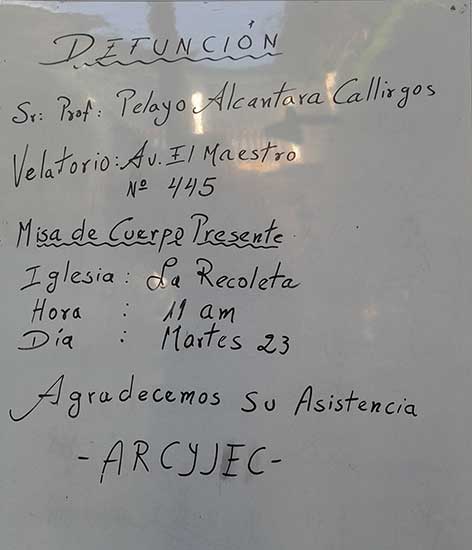 DEFUNCIÓN
Sr: Prof: Pelayo Alcantara Callirgos
Velatorio: Av. El Maestro
Nº 445
Misa de Cuerpo Presente
Iglesia : La Recoleta
Hora : 11 am
Día : Martes 23
Agradecemos su Asistencia
-ARCYJEC-